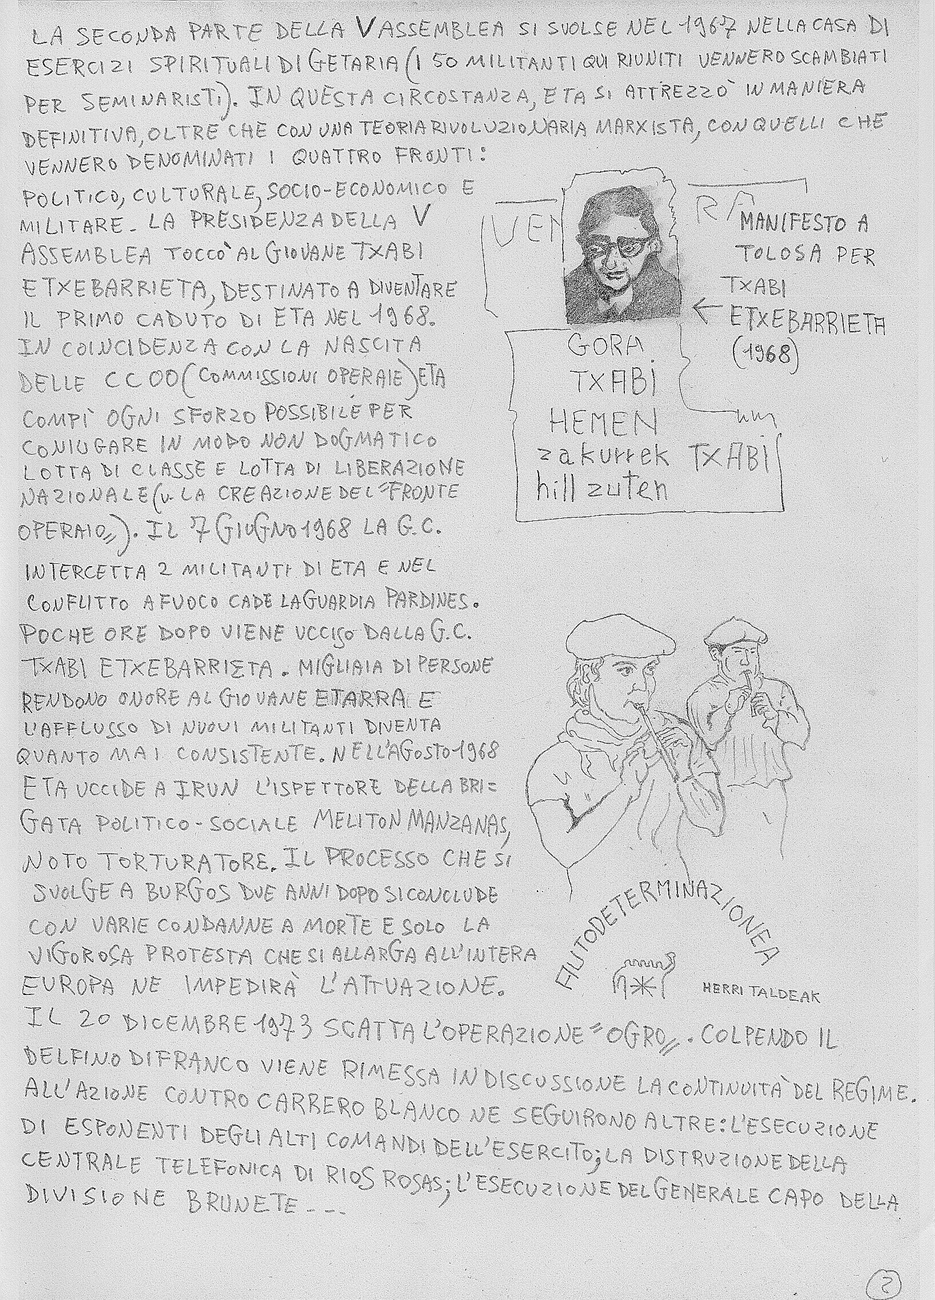 LA SECONDA PARTE DELLA V ASSEMBLEA SI SVOLSE NEL 1967 NELLA CASA DI
ESERCIZI SPIRITUALI DI GETARIA (I 50 MILITANTI QUI RIUNITI VENNERO SCAMBIATI
PER SEMINARISTI). IN QUESTA CIRCOSTANZA, ETA SI ATTREZZO' IN MANIERA
DEFINITIVA, OLTRE CHE CON UNA TEORIA RIVOLUZIONARIA MARXISTA, CON QUELLI CHE
VENNERO DENOMINATI I QUATTRO FRONTI:
POLITICO, CULTURALE, SOCIO-ECONOMICO E
MILITARE. LA PRESIDENZA DELLA V
ASSEMBLEA TOCCO' AL GIOVANE TXABI
ETXEBARRIETA, DESTINATO A DIVENTARE
IL PRIMO CADUTO DI ETA NEL 1968.
IN COINCIDENZA CON LA NASCITA
DELLE CCOO (COMMISSIONI OPERAIE) ETA
COMPÌ OGNI SFORZO POSSIBILE PER
CONIUGARE IN MODO NON DOGMATICO
LOTTA DI CLASSE E LOTTA DI LIBERAZIONE
NAZIONALE (v. LA CREAZIONE DEL "FRONTE
OPERAIO"). IL 7 GIUGNO 1968 LA G.C.
INTERCETTA 2 MILITANTI DI ETA E NEL
CONFLITTO A FUOCO CADE LA GUARDIA PARDINES.
POCHE ORE DOPO VIENE UCCISO DALLA G.C.
TXABI ETXEBARRIETA. MIGLIAIA DI PERSONE
RENDONO ONORE AL GIOVANE ETARRA E
L'AFFLUSSO DI NUOVI MILITANTI DIVENTA
QUANTO MAI CONSISTENTE. NELL'AGOSTO 1968
ETA UCCIDE A IRUN L'ISPETTORE DELLA BRI=
GATA POLITICO-SOCIALE MELITON MANZANAS,
NOTO TORTURATORE. IL PROCESSO CHE SI
SVOLGE A BURGOS DUE ANNI DOPO SI CONCLUDE
CON VARIE CONDANNE A MORTE E SOLO LA
VIGOROSA PROTESTA CHE SI ALLARGA ALL'INTERA
EUROPA NE IMPEDIRÀ L'ATTUAZIONE.
IL 20 DICEMBRE 1973 SCATTA L'OPERAZIONE "OGRO". COLPENDO IL
DELFINO DI FRANCO VIENE RIMESSA IN DISCUSSIONE LA CONTINUITA' DEL REGIME.
ALL'AZIONE CONTRO CARRERO BLANCO NE SEGUIRONO ALTRE: L'ESECUZIONE
DI ESPONENTI DEGLI ALTI COMANDI DELL'ESERCITO; LA DISTRUZIONE DELLA
CENTRALE TELEFONICA DI RIOS ROSAS; L'ESECUZIONE DEL GENERALE CAPO DELLA
DIVISIONE BRUNETE ---
VEN
RA
MANIFESTO A
TOLOSA PER
TXABI
← ETXEBARRIETA
(1968)
GORA
TXABI
HEMEN
zakurrek TXABi
hill zuten
AUTODETERMINAZIONEA
HERRI TALDEAK
2